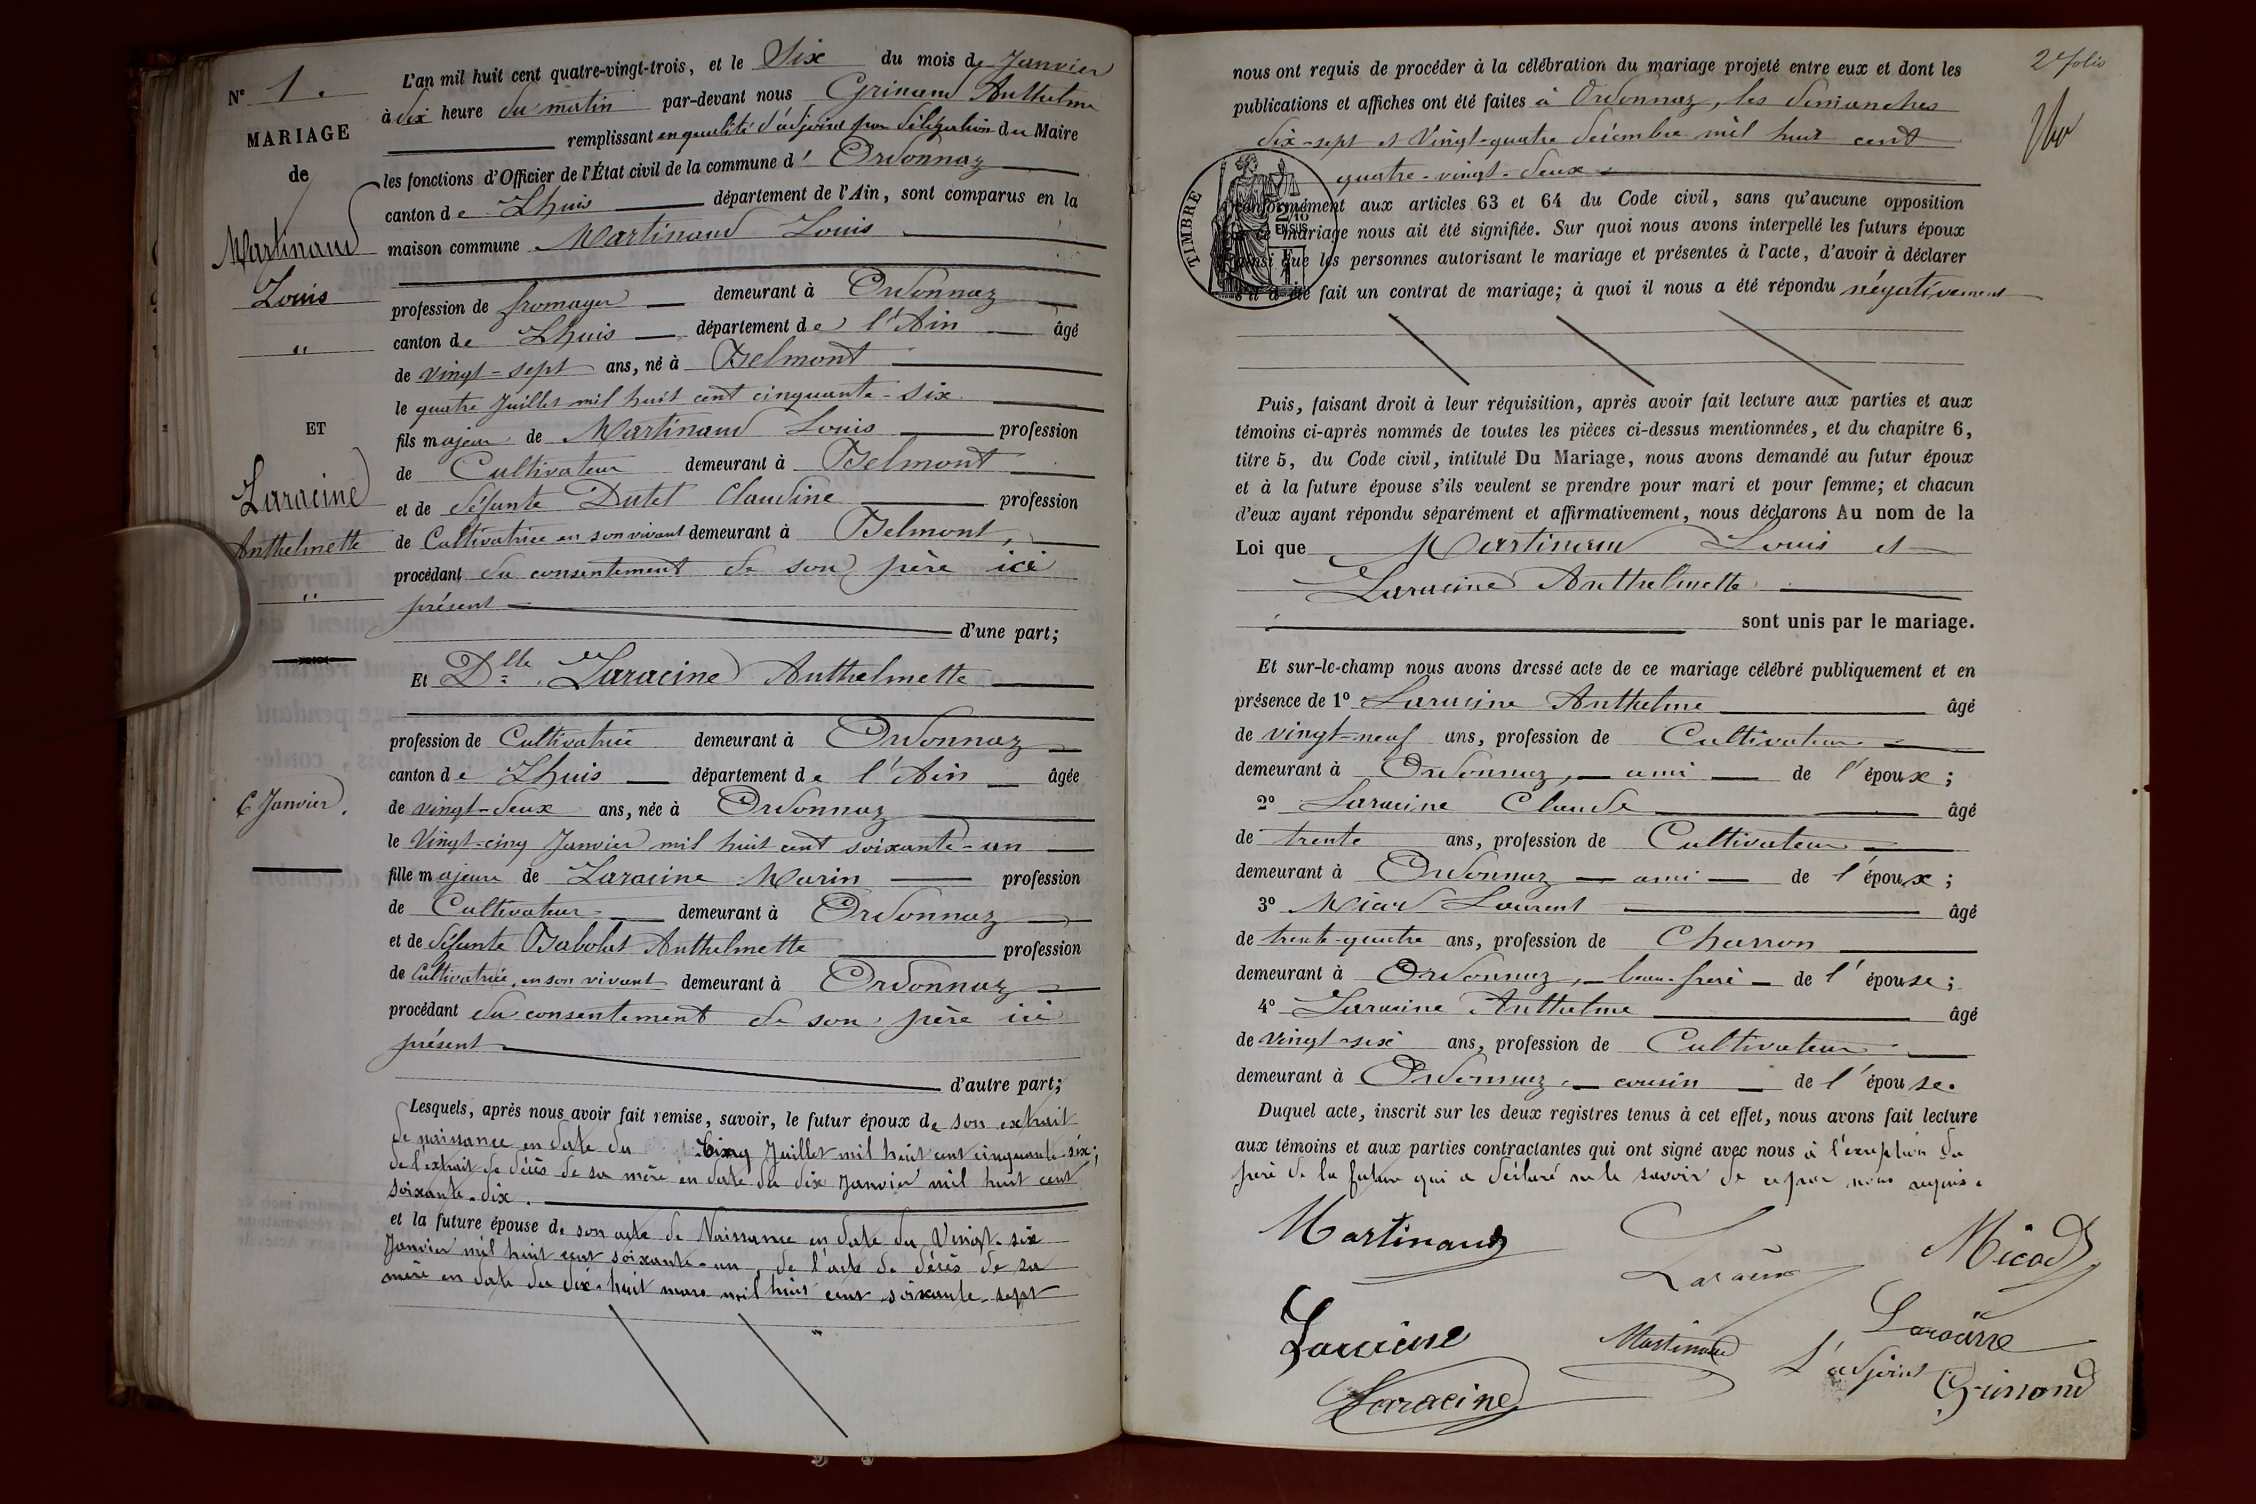 N° 1.
MARIAGE
de
Martinaud
Louis
"
ET
Laracine
Anthelmette
"
6 Janvier.
L'an mil huit cent quatre-vingt-trois, et le Six du mois de Janvier
à dix heure du matin par-devant nous Grinand Anthelme
remplissant en qualité d'adjoint par délégation du Maire
les fonctions d'Officier de l'État civil de la commune d' Ordonnaz
canton de Lhuis département de l'Ain, sont comparus en la
maison commune Martinaud Louis
profession de fromager demeurant à Ordonnaz
canton de Lhuis département de l'Ain âgé
de vingt-sept ans, né à Belmont
le quatre Juillet mil huit cent cinquante-six
fils majeur de Martinaud Louis profession
de Cultivateur demeurant à Belmont
et de défunte Dutel Claudine profession
de Cultivatrice en son vivant demeurant à Belmont,
procédant du consentement de son père ici
présent
d'une part;
Et Dlle Laracine Anthelmette
profession de Cultivatrice demeurant à Ordonnaz
canton de Lhuis département de l'Ain âgée
de vingt-deux ans, née à Ordonnaz
le Vingt-cinq Janvier mil huit cent soixante-un
fille majeure de Laracine Marin profession
de Cultivateur demeurant à Ordonnaz
et de défunte Babolat Anthelmette profession
de Cultivatrice, en son vivant demeurant à Ordonnaz
procédant du consentement de son père ici
présent
d'autre part;
Lesquels, après nous avoir fait remise, savoir, le futur époux de son extrait
de naissance en date du Cinq Juillet mil huit cent cinquante-six;
de l'extrait de décès de sa mère en date du dix Janvier mil huit cent
soixante-dix.
et la future épouse de son acte de Naissance en date du Vingt-six
Janvier mil huit cent soixante-un, de l'acte de décès de sa
mère en date du dix-huit mars mil huit cent soixante-sept
2e folio
nous ont requis de procéder à la célébration du mariage projeté entre eux et dont les
publications et affiches ont été faites à Ordonnaz, les dimanches
dix-sept et Vingt-quatre décembre mil huit cent
quatre-vingt-deux
TIMBRE
2/10
EN SUS
conformément aux articles 63 et 64 du Code civil, sans qu'aucune opposition
à ce mariage nous ait été signifiée. Sur quoi nous avons interpellé les futurs époux
ainsi que les personnes autorisant le mariage et présentes à l'acte, d'avoir à déclarer
s'il a été fait un contrat de mariage; à quoi il nous a été répondu négativement
Puis, faisant droit à leur réquisition, après avoir fait lecture aux parties et aux
témoins ci-après nommés de toutes les pièces ci-dessus mentionnées, et du chapitre 6,
titre 5, du Code civil, intitulé Du Mariage, nous avons demandé au futur époux
et à la future épouse s'ils veulent se prendre pour mari et pour femme; et chacun
d'eux ayant répondu séparément et affirmativement, nous déclarons Au nom de la
Loi que Martinaud Louis et
Laracine Anthelmette
sont unis par le mariage.
Et sur-le-champ nous avons dressé acte de ce mariage célébré publiquement et en
présence de 1° Laracine Anthelme âgé
de vingt-neuf ans, profession de Cultivateur
demeurant à Ordonnaz, ami de l'époux;
2° Laracine Claude âgé
de trente ans, profession de Cultivateur
demeurant à Ordonnaz ami de l'époux;
3° Micod Laurent âgé
de trente-quatre ans, profession de Charron
demeurant à Ordonnaz, beau-frère de l'épouse;
4° Laracine Anthelme âgé
de vingt-six ans, profession de Cultivateur
demeurant à Ordonnaz, cousin de l'épouse.
Duquel acte, inscrit sur les deux registres tenus à cet effet, nous avons fait lecture
aux témoins et aux parties contractantes qui ont signé avec nous à l'exception du
père de la future qui a déclaré ne le savoir de ce par nous requis.
Martinaud
Laracine
Micod
Laracine
Martinaud
Laracine
Laracine
L'adjoint
Grinand